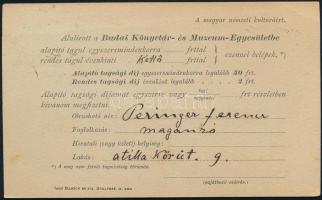 A magyar nemzeti kulturáért.
Alulirott a Budai Könyvtár- és Muzeum-Egyesületbe
alapitó tagul egyszersmindenkorra frttal
rendes tagul évenkint Kettő frttal
ezennel belépek. *)
Alapitó tagsági díj egyszersmindenkorra legalább 50 frt.
Rendes tagsági díj évenként legalább 2 frt.
Alapitó tagsági díjamat egyszerre vagy frt részletben
kivánom megfizetni.
Olvasható név: Peringer Ferenc
Foglalkozás: magánzó
Hivatali (vagy üzleti) helyiség:
Lakás: Atilla Körút. 9.
*) A meg nem felelő tagminőség törlendő.
(sajátkezű aláirás.)